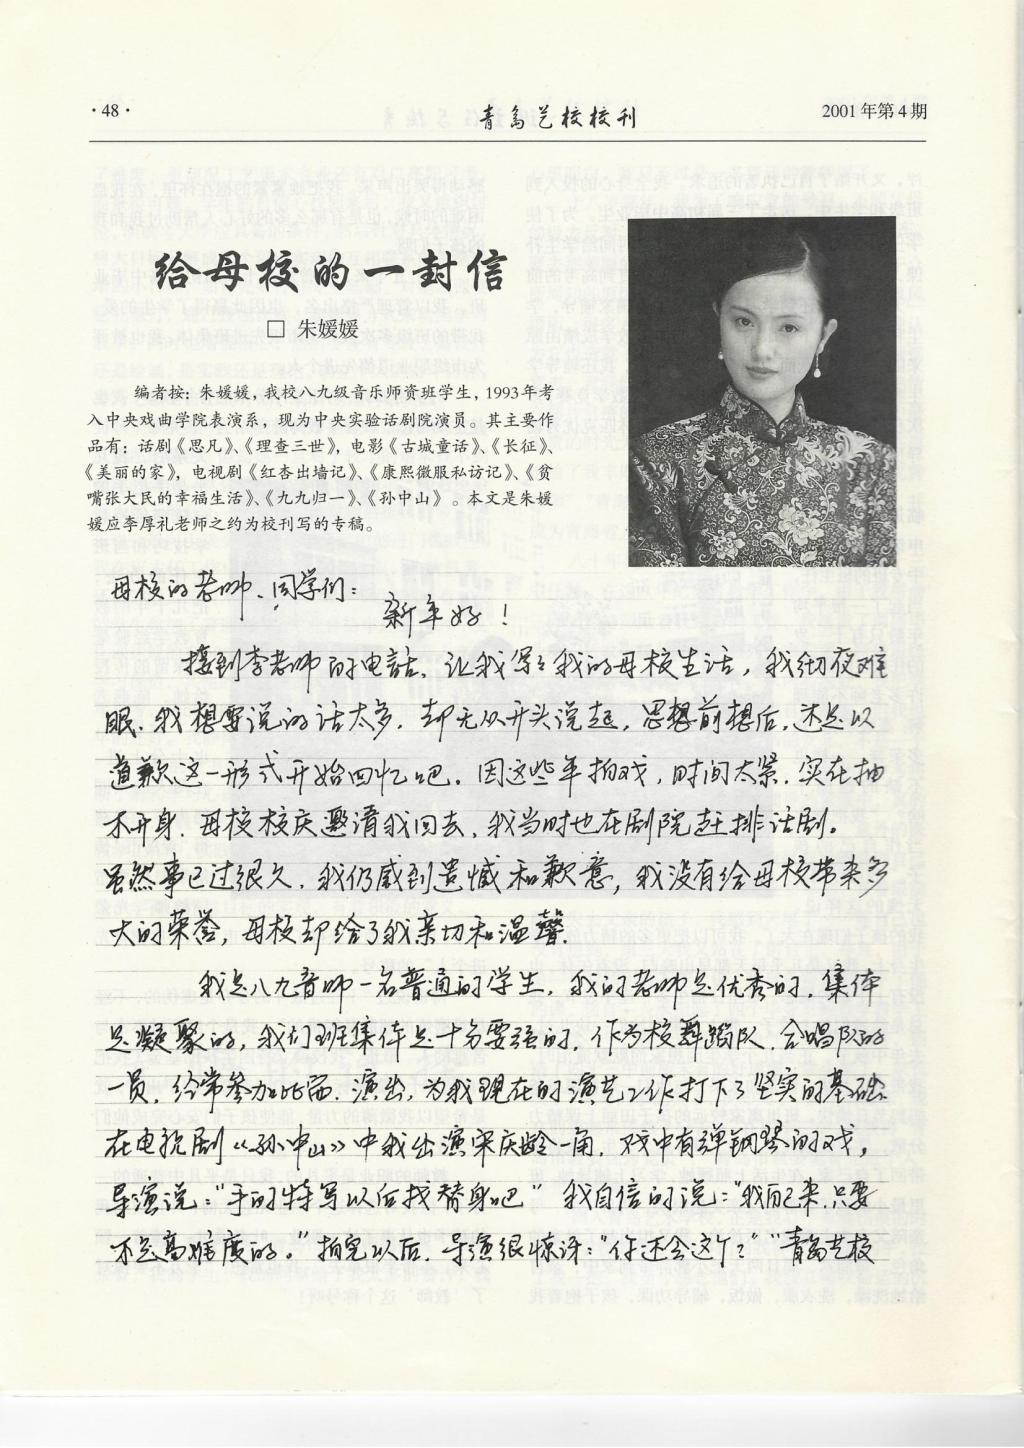 ·48·
青岛艺校校刊
2001年第4期
给母校的一封信
□ 朱媛媛
编者按：朱媛媛，我校八九级音乐师资班学生，1993年考
入中央戏曲学院表演系，现为中央实验话剧院演员。其主要作
品有：话剧《思凡》、《理查三世》，电影《古城童话》、《长征》、
《美丽的家》，电视剧《红杏出墙记》、《康熙微服私访记》、《贫
嘴张大民的幸福生活》、《九九归一》、《孙中山》。本文是朱媛
媛应李厚礼老师之约为校刊写的专稿。
母校的老师、同学们：
新年好！
接到李老师的电话，让我写写我的母校生活，我彻夜难
眠，我想要说的话太多，却无从开头说起，思想前想后，还是以
道歉这一形式开始回忆吧。因这些年拍戏，时间太紧，实在抽
不开身，母校校庆邀请我回去，我当时也在剧院赶排话剧。
虽然事已过很久，我仍感到遗憾和歉意，我没有给母校带来多
大的荣誉，母校却给了我亲切和温馨。
我是八九音师一名普通的学生，我的老师是优秀的，集体
是凝聚的，我们班集体是十分要强的，作为校舞蹈队、合唱队的
一员，经常参加比赛、演出，为我现在的演艺工作打下了坚实的基础。
在电视剧《孙中山》中我出演宋庆龄一角，戏中有弹钢琴的戏，
导演说：“手的特写以后找替身吧”我自信的说：“我自己来，只要
不是高难度的。”拍完以后，导演很惊讶：“你还会这个？”“青岛艺校